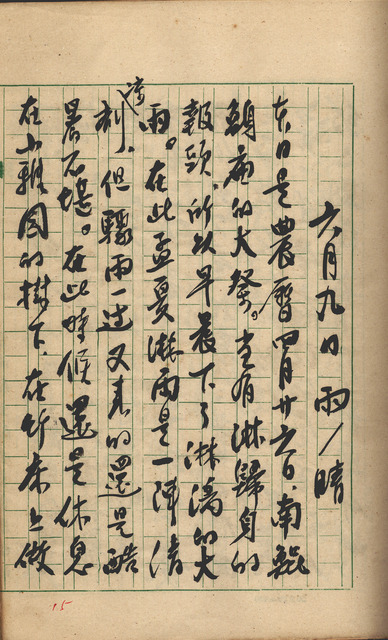 六月九日 雨/晴
本日是農曆四月廿六日,南鯤
鯓廟的大祭。有淋歸身的
報頭,所以早晨下了淋漓的大
雨。在此孟夏淋雨是一陣清
涼,但驟雨一過又來的還是酷
暑不堪。在此時候還是休息
在小雅園的樹下、在竹床上做
15